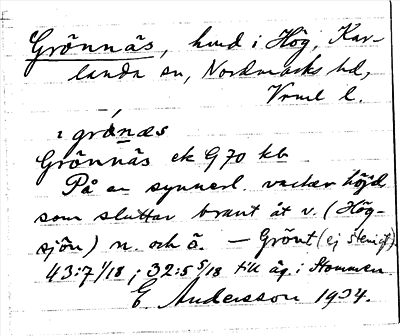 Grönnäs, hmd i Hög, Kar-
landa sn, Nordmarks hd,
Vrml l.
i grǿnæs
Grönnäs ek G 70 kb
På en synnerl. vacker höjd
som sluttar brant åt v. (Hög-
sjön) n. och ö. — Grönt (ej stenigt)
43:7 1/18; 32:5 5/18 till äg. i Stommen.
E. Andersson 1934.